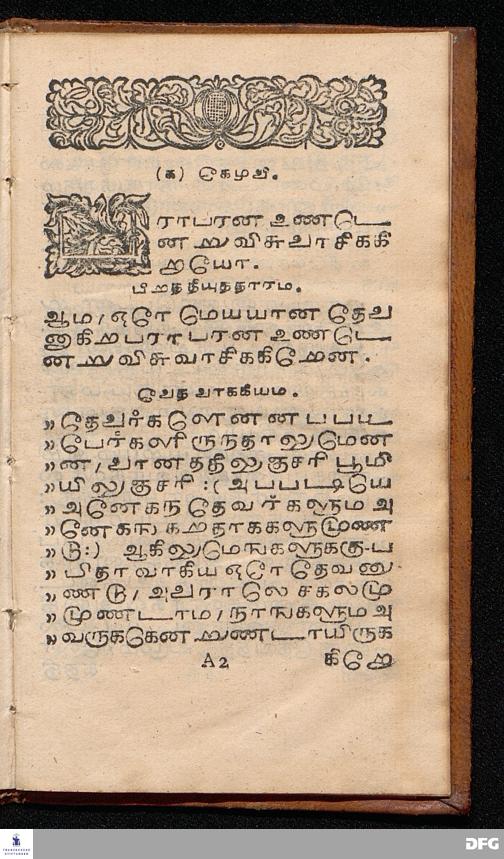 (க) கெழவி.
ராபரன உணடெ
ன றுவிசுவாசிககி
றயோ.
பிறததியுததாரம.
ஆம, ஏரெ மெயயான தேவ
னுகிறபராபரன உணடெ
னறுவிசுவாசிககிறென.
வெத வாககியம.
» தெவர்களெனனபபட
» பெர்களிருநதாலுமென
» ன, வானததிலுஞசரி பூமி
» யிலுஞசரி :( அபபடியெ
» அனேகந தெவர்களும அ
» னேகங கறதாககளுமுண
» டு:) ஆகிலுமெஙகளுககு-ப
» பிதாவாகிய ஏரெ தேவனு
» ணடு, அவராலெ சகலமு
» முணடாம, நாஙகளும அ
» வருககெனறுணடாயிருக
A2 கிறே
DFG